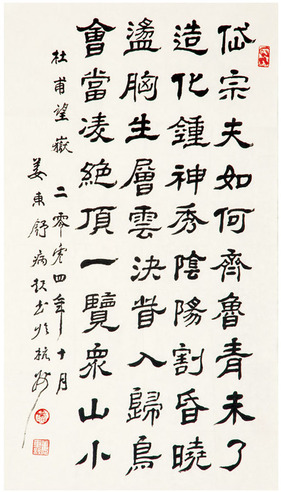 岱宗夫如何齊魯青未了
造化鍾神秀陰陽割昏曉
盪胸生層雲決眥入歸鳥
會當凌絕頂一覽眾山小
杜甫望嶽 二零零四年十月
姜東舒病起書於杭州